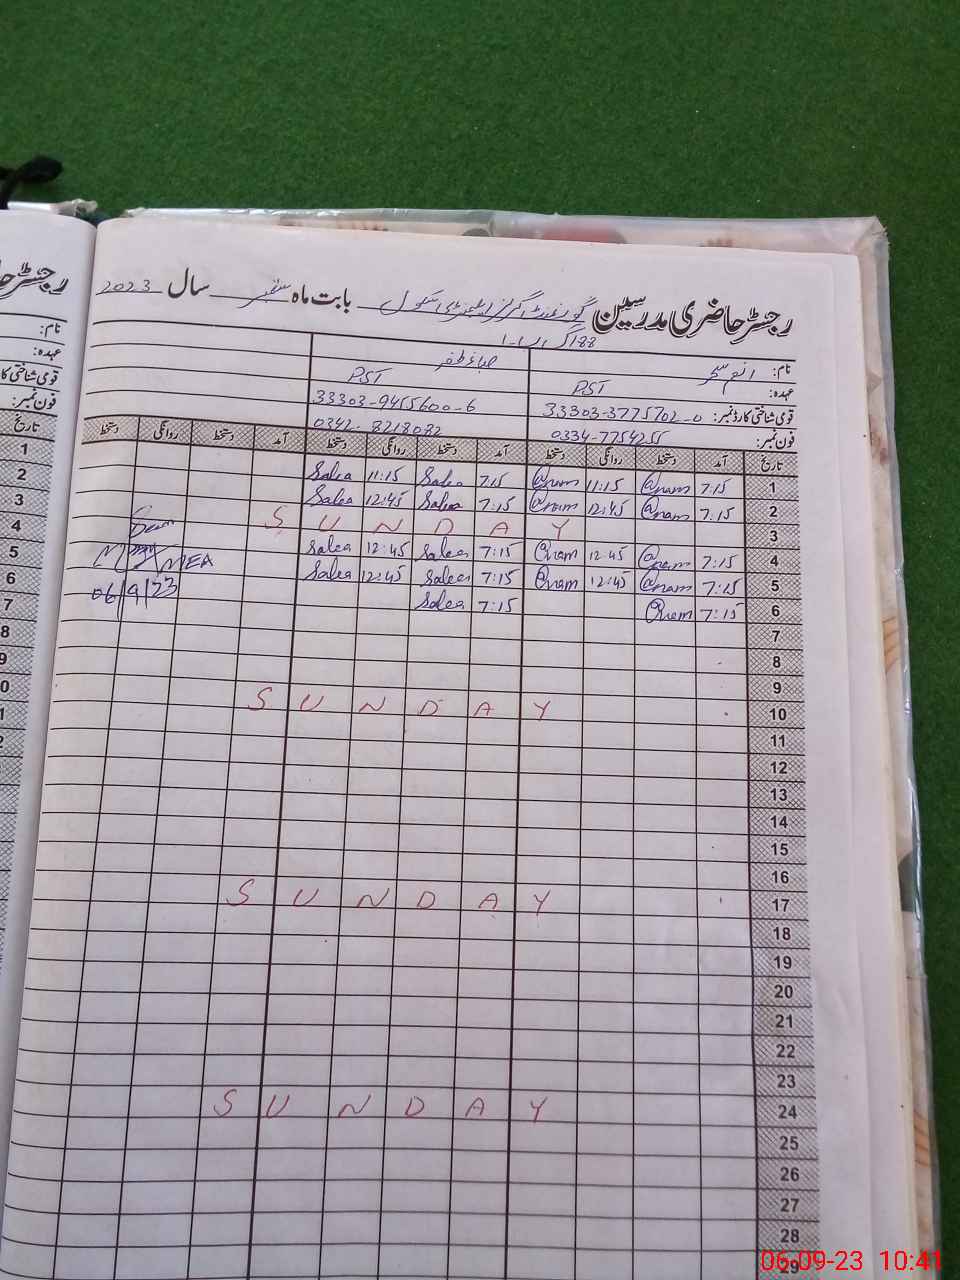 رجسٹر حاضری مدرسین گورنمنٹ گرلز ایلیمنٹری سکول بابت ماہ ستمبر سال 2023
نام: انعم سحر صباء ظفر
عہدہ: PST PST
قومی شناختی کارڈ نمبر: 33303-3775702-0 33303-9455600-6
فون نمبر: 0334-7754255 0342-8218082
تاریخ آمد دستخط روانگی دستخط آمد دستخط روانگی دستخط آمد دستخط روانگی دستخط
1 7:15 @nam 11:15 @nam 7:15 Salea 11:15 Salea
2 7:15 @nam 12:45 @nam 7:15 Salea 12:45 Salea
3 S U N D A Y
4 7:15 @nam 12:45 @nam 7:15 Salea 12:45 Salea
5 7:15 @nam 12:45 @nam 7:15 Salea 12:45 Salea
6 7:15 @nam 7:15 Salea
MEA
06/9/23
7
8
9
10 S U N D A Y
11
12
13
14
15
16
17 S U N D A Y
18
19
20
21
22
23
24 S U N D A Y
25
26
27
28
29
رجسٹر حا
نام:
عہدہ:
قومی شناختی کا
فون نمبر:
تاریخ
1
2
3
4
5
6
7
8
9
0
1
2
06-09-23 10:41